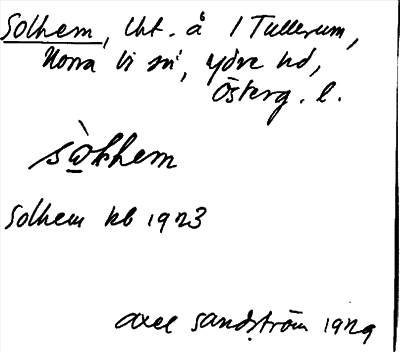 Solhem, lht. å 1 Tullerum,
Norra Vi sn, Ydre hd,
Österg. l.
Solhem kb 1923
Axel Sandström 1929